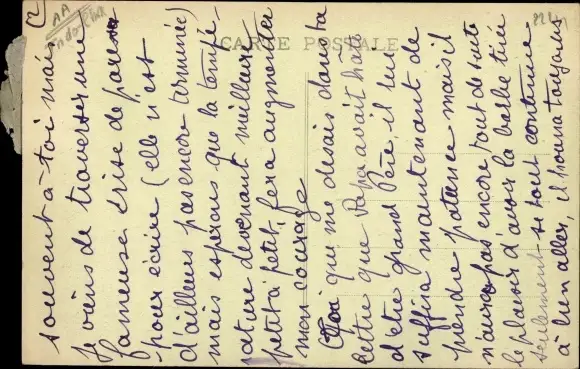 (2
souvent à toi mais
je viens de traverser une
fameuse crise de paresse
pour écrire (elle n'est
d'ailleurs pas encore terminée)
mais esperons que la tempé-
rature devenant meilleure
petit à petit, fera augmenter
mon courage
Toi qui me disais dans ta
lettre que Papa avait hâte
d'être grand Père, il lui
suffira maintenant de
prendre patience mais il
n'aura pas encore tout de suite
le plaisir d'avoir la barbe tirée
seulement se tout continue
à bien aller, il pourra toujours
CARTE POSTALE
AA